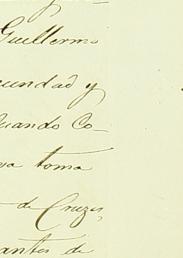 y -
Guillermo
undad y
uando Co-
va toma
- de Cruzes,
antes de